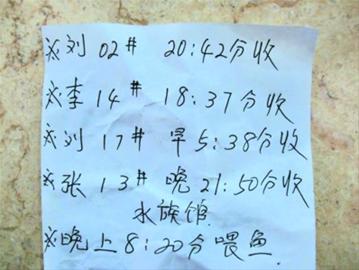 ※刘 02# 20:42分收
※李 14# 18:37分收
※刘 17# 早5:38分收
※张 13# 晚21:50分收
水族馆
※晚上8:20分喂鱼